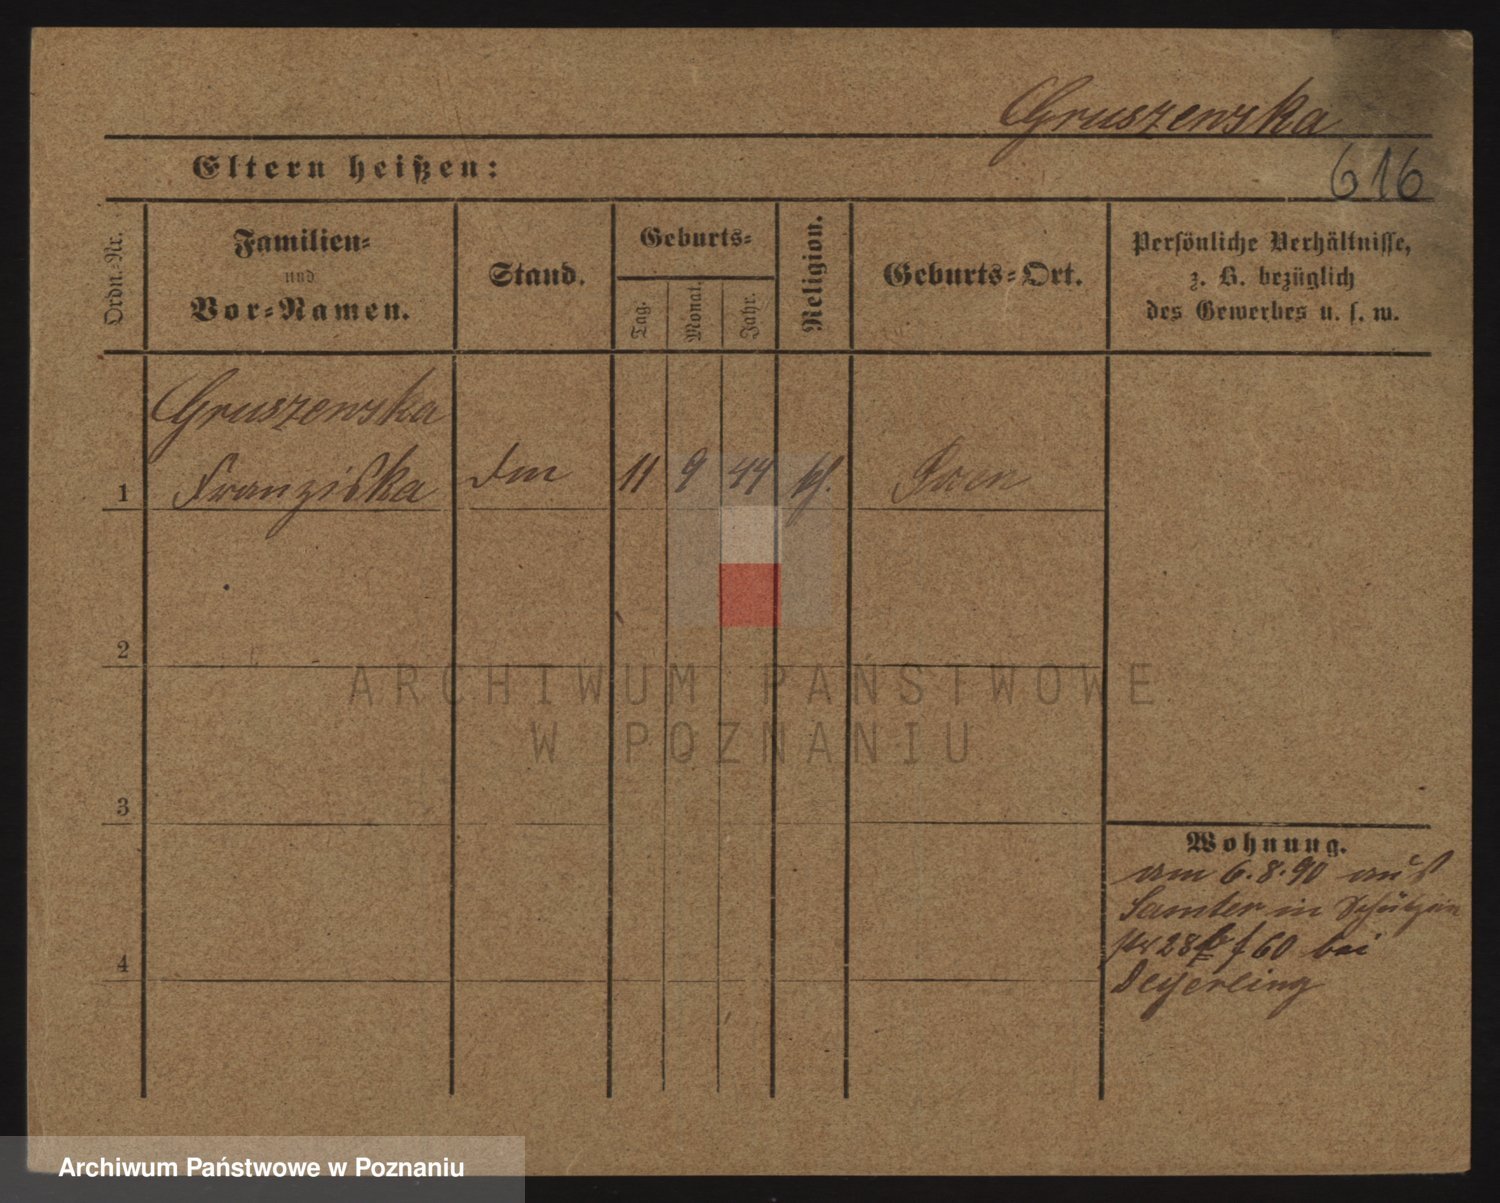 Gruszewska
616
Eltern heißen:
Ordn.-Nr.
Familien-
und
Vor-Namen.
Stand.
Geburts-
Tag.
Monat.
Jahr.
Religion.
Geburts-Ort.
Persönliche Verhältnisse,
z. B. bezüglich
des Gewerbes u. s. w.
Gruszewska
1 Franziska 11 9 44
2
3
4
Wohnung.
am 6.8.90 aus
Samter in
28 f 60 bei
Deyerling
ARCHIWUM PAŃSTWOWE
W POZNANIU
Archiwum Państwowe w Poznaniu